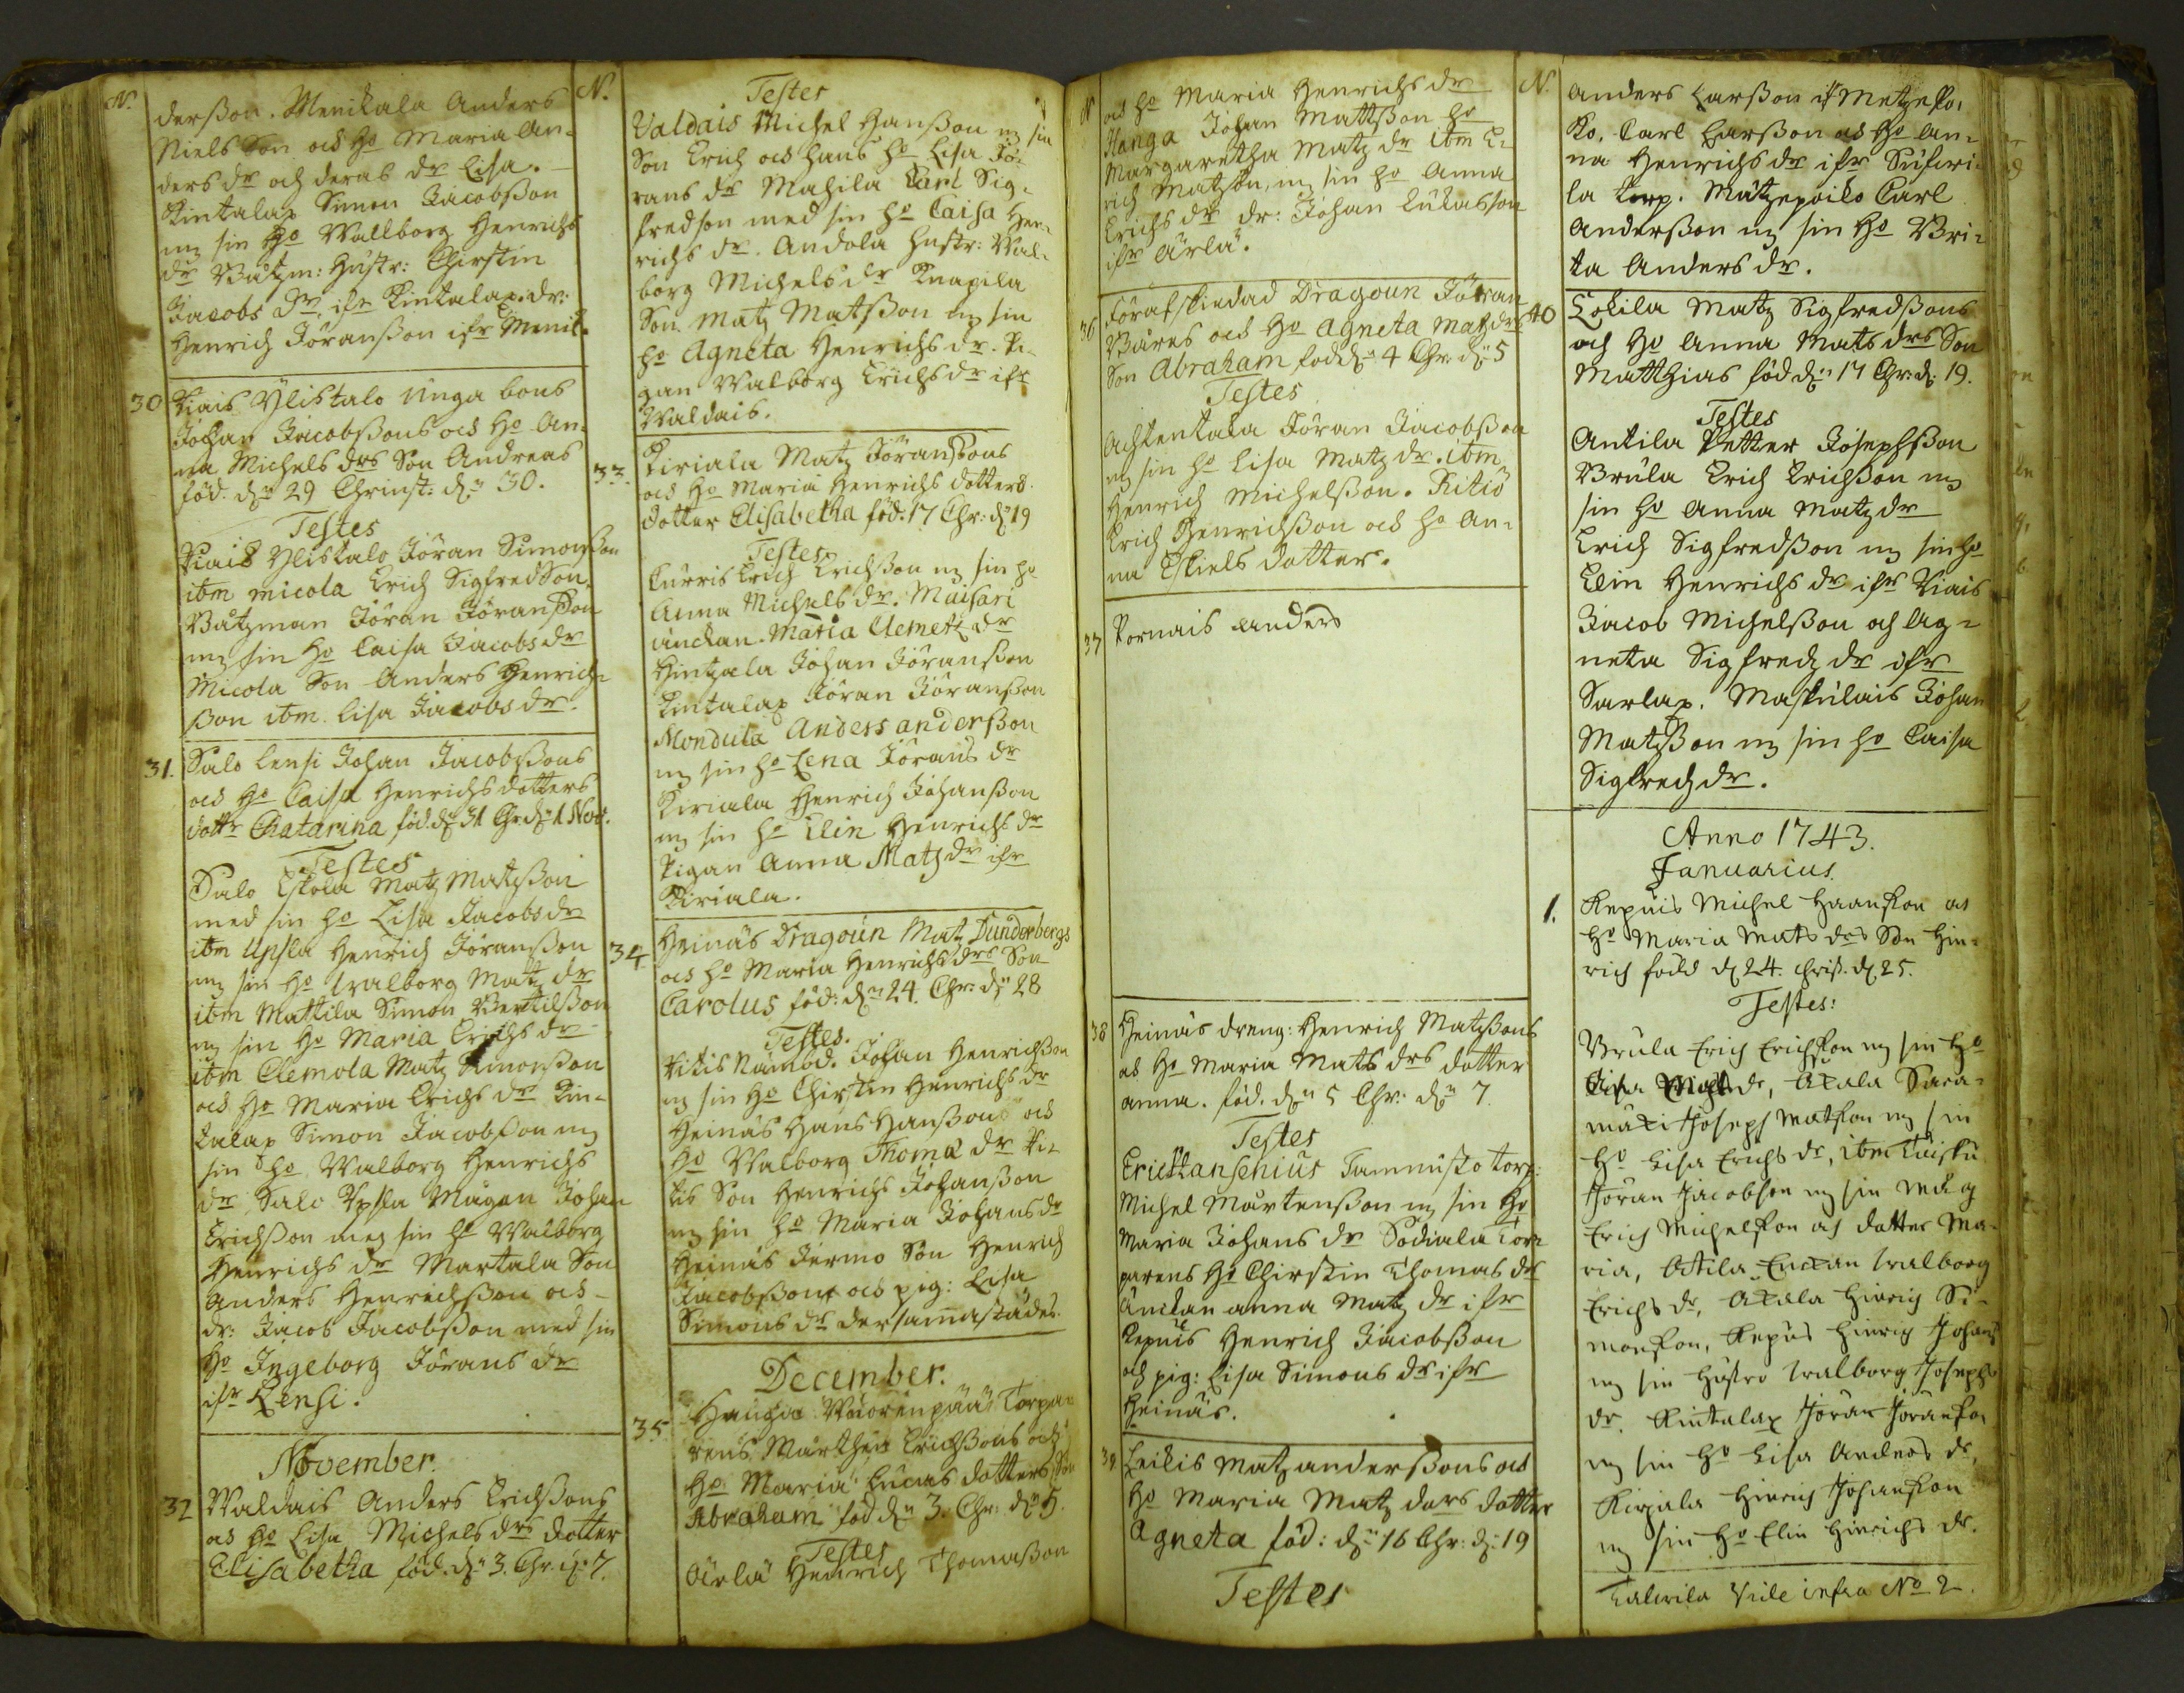 N.
derßon. Menikala Anders
Nielsson och Ho Maria An-
ders dr och deras dr Lisa.
Kintalax Simon Jacobßon
mz sin Ho Wallborg Henrichs
dr Båtzm: Hustr: Chirstin
Jacobs dr, ifr Kintalax. dr:
Henrich Jöranßon ifr Menik.
30 Viais Ylistalo Unga bons
Johan Jacobßons och Ho An-
na Michels drs Son Andreas
föd. dn 29 Christ: dn 30.
Testes
Viais Ylistalo Jöran Simonßon
ibm Micola Erich Sigfredson,
Båtzman Jöran Jöranßon
mz sin Ho Caisa Jacobs dr
Micola Son Anders Henrich-
ßon ibm. Lisa Jacobs dr.
31. Salo Lensi Johan Jacobßons
och Ho Caisa Henrichsdotters
dottr Chatarina föd. dn 31 Chr dn 1 Nov.
Testes
Salo Eskola Matz Matzßon
med sin Ho Lisa Jacobs dr
ibm Upsla Henrich Jöranßon
mz sin Ho Walborg Matz dr
ibm Mattila Simon Bertilßon
mz sin Ho Maria Erichs dr
ibm Clemola Matz Simonßon
och Ho Maria Erichs dr Kin-
talax Simon Jacobßon mz
sin Ho Walborg Henrichs
dr Salo Ypsla Mågan Johan
Erichßon mez sin Ho Walborg
Henrichs dr Martala Son
Anders Henrichßon och
dr: Jacob Jacobßon med sin
Ho Ingeborg Jörans dr
ifr Lensi.
November.
32 Waldais Anders Erichßons
och Ho Lisa Michels drs dotter
Elisabetha föd. dn 3. Chr. dn 7.
N.
Testes
Valdais Michel Hanßon mz sin
Son Erich och hans Ho Lisa Jö-
rans dr Mahila Carl Sig-
fredson med sin Ho Caisa Hen-
richs dr. Andola Hustr: Wal-
borg Michels dr Knapila
Son Matz Matßon mz sin
Ho Agneta Henrichs dr. Pi-
gan Walborg Erichs dr ifr
Waldais.
33. Kiriala Matz Jöranßons
och Ho Maria Henrichs dotters
dotter Elisabetha föd. 17 Chr: dn 19
Testes
Curris Erich Erichßon mz sin Ho
Anna Michels dr. Maisari
änckan. Maria Clemetz dr
Hintzala Johan Jöranßon
Kintalax Jöran Jöranßon
Mondula Anders Anderßon
mz sin Ho Lena Jörans dr
Kiriala Henrich Johanßon
mz sin Ho Elin Henrichs dr
Pigan Anna Matz dr ifr
Kiriala.
34. Heinäs Dragoun Matz Dunderbergs
och Ho Maria Henrichs drs Son
Carolus föd: dn 24. Chr: dn 28
Testes.
Vitis Nämnd. Johan Henrichßon
mz sin Ho Chirstin Henrichs dr
Heinäs Hans Hanßons och
Ho Walborg Thoma dr Vi-
tis Son Henrichs Johanßon
mz sin Ho Maria Johans dr
Heinäs Jermo Son Henrich
Jacobßons och pig: Lisa
Simons dr dersamastädes.
December.
35. Haugia Wuorenpää Torpa-
rens Marthen Erichßons och
Ho Maria Lucas dotters Son
Abraham föd dn 3. Chr: dn 5.
Testes
Ärlä Henrich Thomaßon
N
och Ho Maria Henrichs dr
Hanga Johan Mattßon Ho
Margaretha Matz dr ibm E-
rich Matzon, mz sin Ho Anna
Erichs dr dr: Johan Lukasson
ifr Ärlä.
36 Förafskiedad Dragoun Jöran
Bures och Ho Agneta Matz drs
Son Abraham föd dn 4 Chr. dn 5
Testes
Achtentala Jöran Jacobßon
mz sin Ho Lisa Matz dr. ibm
Henrich Michelßon. Kitiö
Erich Henrichßon och Ho An-
na Eskiels dotter.
37 Pornais Anders
38 Heinäs dreng: Henrich Matzßons
och Ho Maria Mats drs dotter
Anna. föd. dn 5 Chr: dn 7.
Testes
Erich Hansenius Tammisto torp:
Michel Mårtenßon mz sin Ho
Maria Johans dr Södiala Tor-
parens Ho Chirstin Thomas dr
Änckan Anna Matz dr ifr
Kepuis Henrich Jacobßon
och pig: Lisa Simons dr ifr
Heinäs.
39. Leikis Matz Anderßons och
Ho Maria Matz ders dotter
Agneta föd: dn 16 Chr: dn 19
Testes
N.
Anders Larßon if Metzeko,
Ko. Carl Larßon och Ho An-
na Henrichs dr ifr
la torp. Mätzepoiko Carl
Anderßon mz sin Ho Bri-
ta Anders dr.
40 Lokila Matz Sigfredßons
och Ho Anna Mats drs Son
Matthias föd dn 17 Chr: d. 19.
Testes
Antila Petter Josephßon
Brula Erich Erichßon mz
sin Ho Anna Matz dr
Erich Sigfredßon mz sin Ho
Elin Henrichs dr ifr Viais
Jacob Michelßon och Ag-
neta Sigfredz dr ifr
Sarlax. Maskulais Johan
Matzßon mz sin Ho Caisa
Sigfredz dr.
Anno 1743.
Januarius.
1. Kepuis Michel Haanßon as
Ho Maria Mats drs Son Hin-
rich född d 24. Christ. d 25.
Testes:
Brula Erich Erichßon mz sin Ho
Lisa dr, Akala Sara-
mäki Joseph Matßon mz sin
Ho Lisa Erichs dr, ibm Kuisku
Jöran Jacobson mz sin måg
Erich Michelßon och dotter Ma-
ria, Attila Enckan Walborg
Erichs dr, Akala Hinrich Si-
monßon, Kepus Hinrich Johans
mz sin Hustro Walborg Josephs
dr. Kintalax Jöran Jöranßon
mz sin Ho Lisa Anders dr,
Kirjala Hinrich Johanßon
mz sin Ho Elin Hinrichs dr.
Vide infra No 2